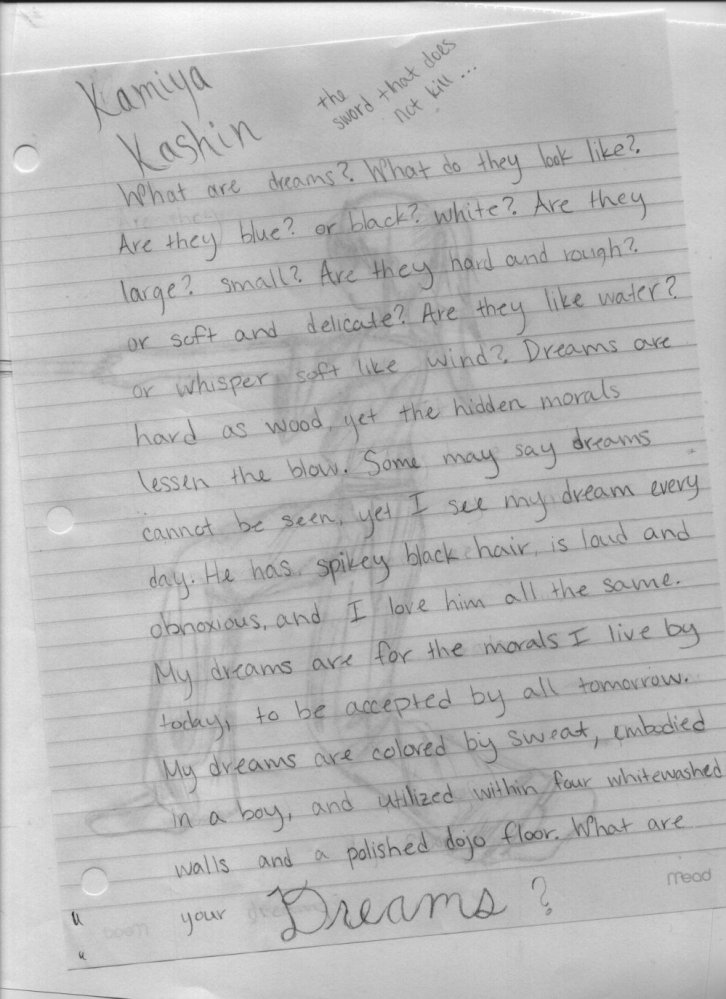 Kamiya
Kashin
the
sword that does
not kill...
What are dreams? What do they look like?
Are they blue? or black? white? Are they
large? small? Are they hard and rough?
or soft and delicate? Are they like water?
or whisper soft like wind? Dreams are
hard as wood, yet the hidden morals
lessen the blow. Some may say dreams
cannot be seen, yet I see my dream every
day. He has spikey black hair, is loud and
obnoxious, and I love him all the same.
My dreams are for the morals I live by
today, to be accepted by all tomorrow.
My dreams are colored by sweat, embodied
in a boy, and utilized within four whitewashed
walls and a polished dojo floor. What are
your Dreams?
mead